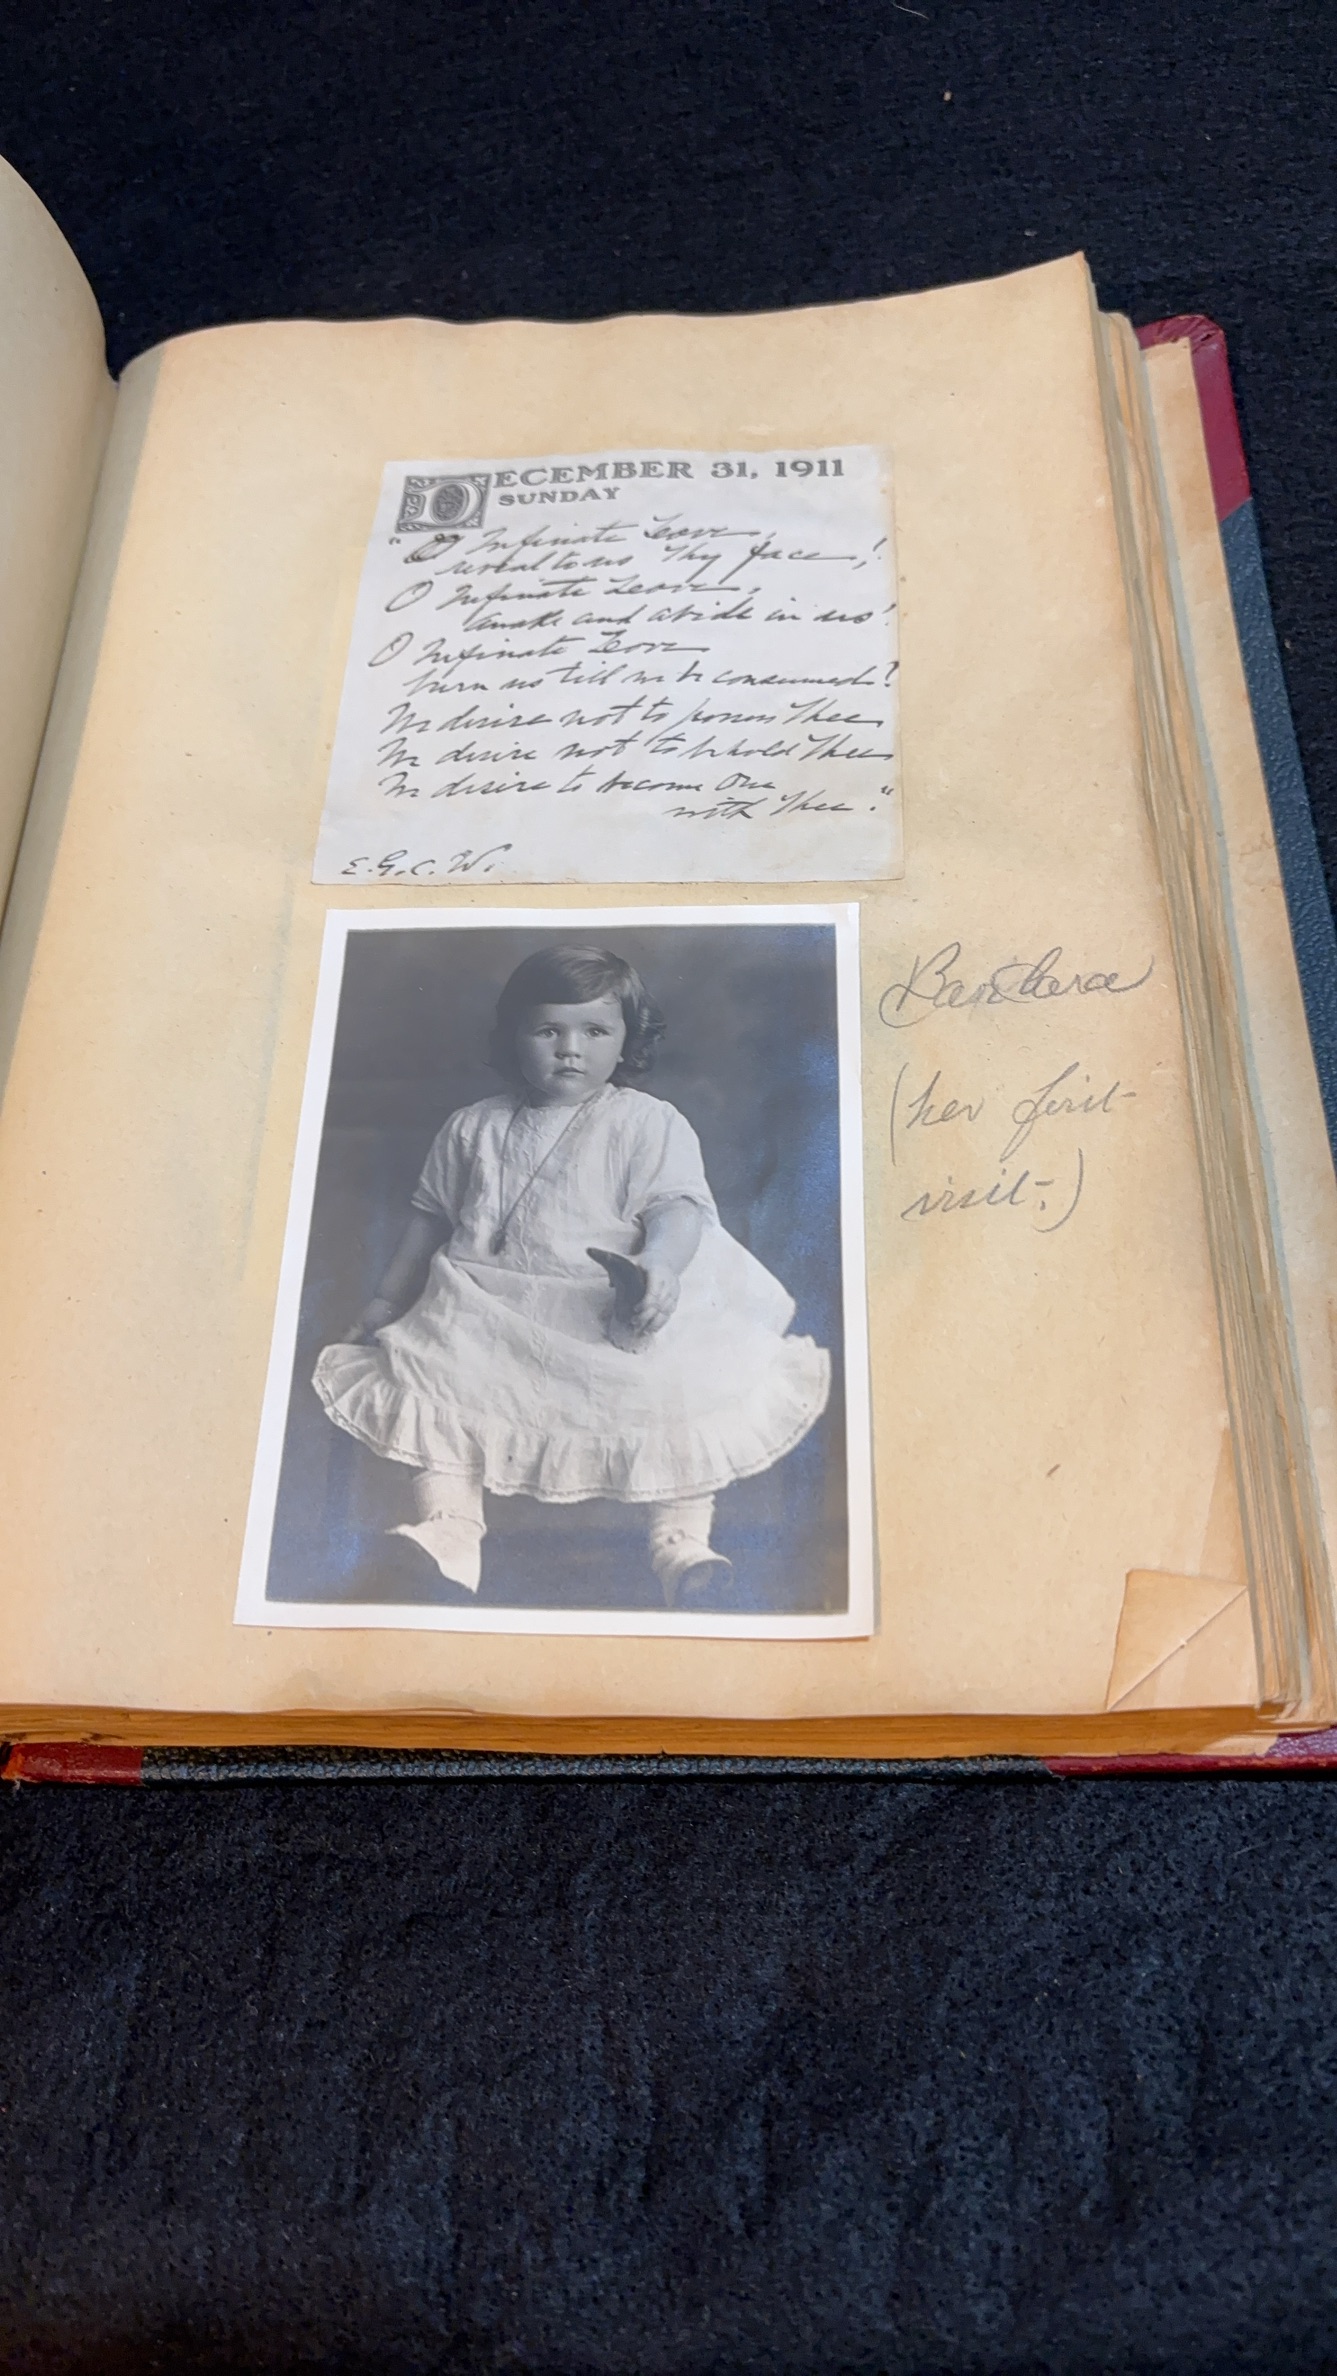 DECEMBER 31, 1911
SUNDAY
"O Infinite Love,
reveal to us Thy face!
O Infinite Love,
awake and abide in us!
O Infinite Love
burn us till we be consumed!
We desire not to possess Thee
We desire not to behold Thee
We desire to become One
with Thee."
E.G.C.W.
Barbara
(her first
visit.)